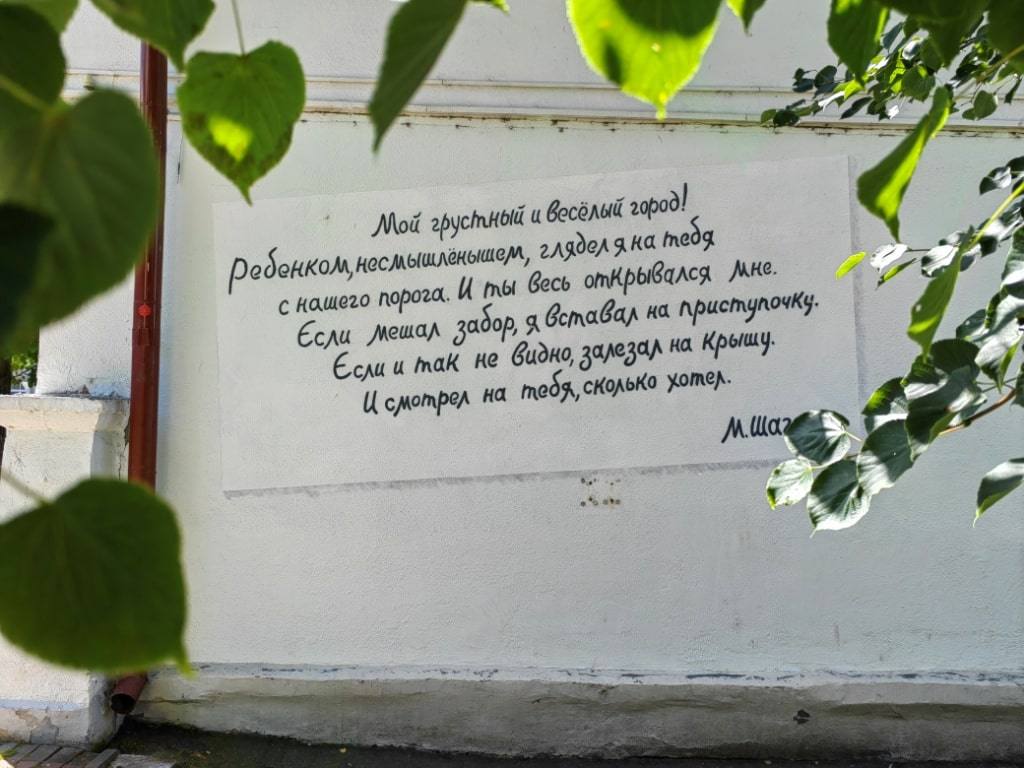 Мой грустный и весёлый город!
Ребенком, несмышлёнышем, глядел я на тебя
с нашего порога. И ты весь открывался мне.
Если мешал забор, я вставал на приступочку.
Если и так не видно, залезал на крышу.
И смотрел на тебя, сколько хотел.
М.